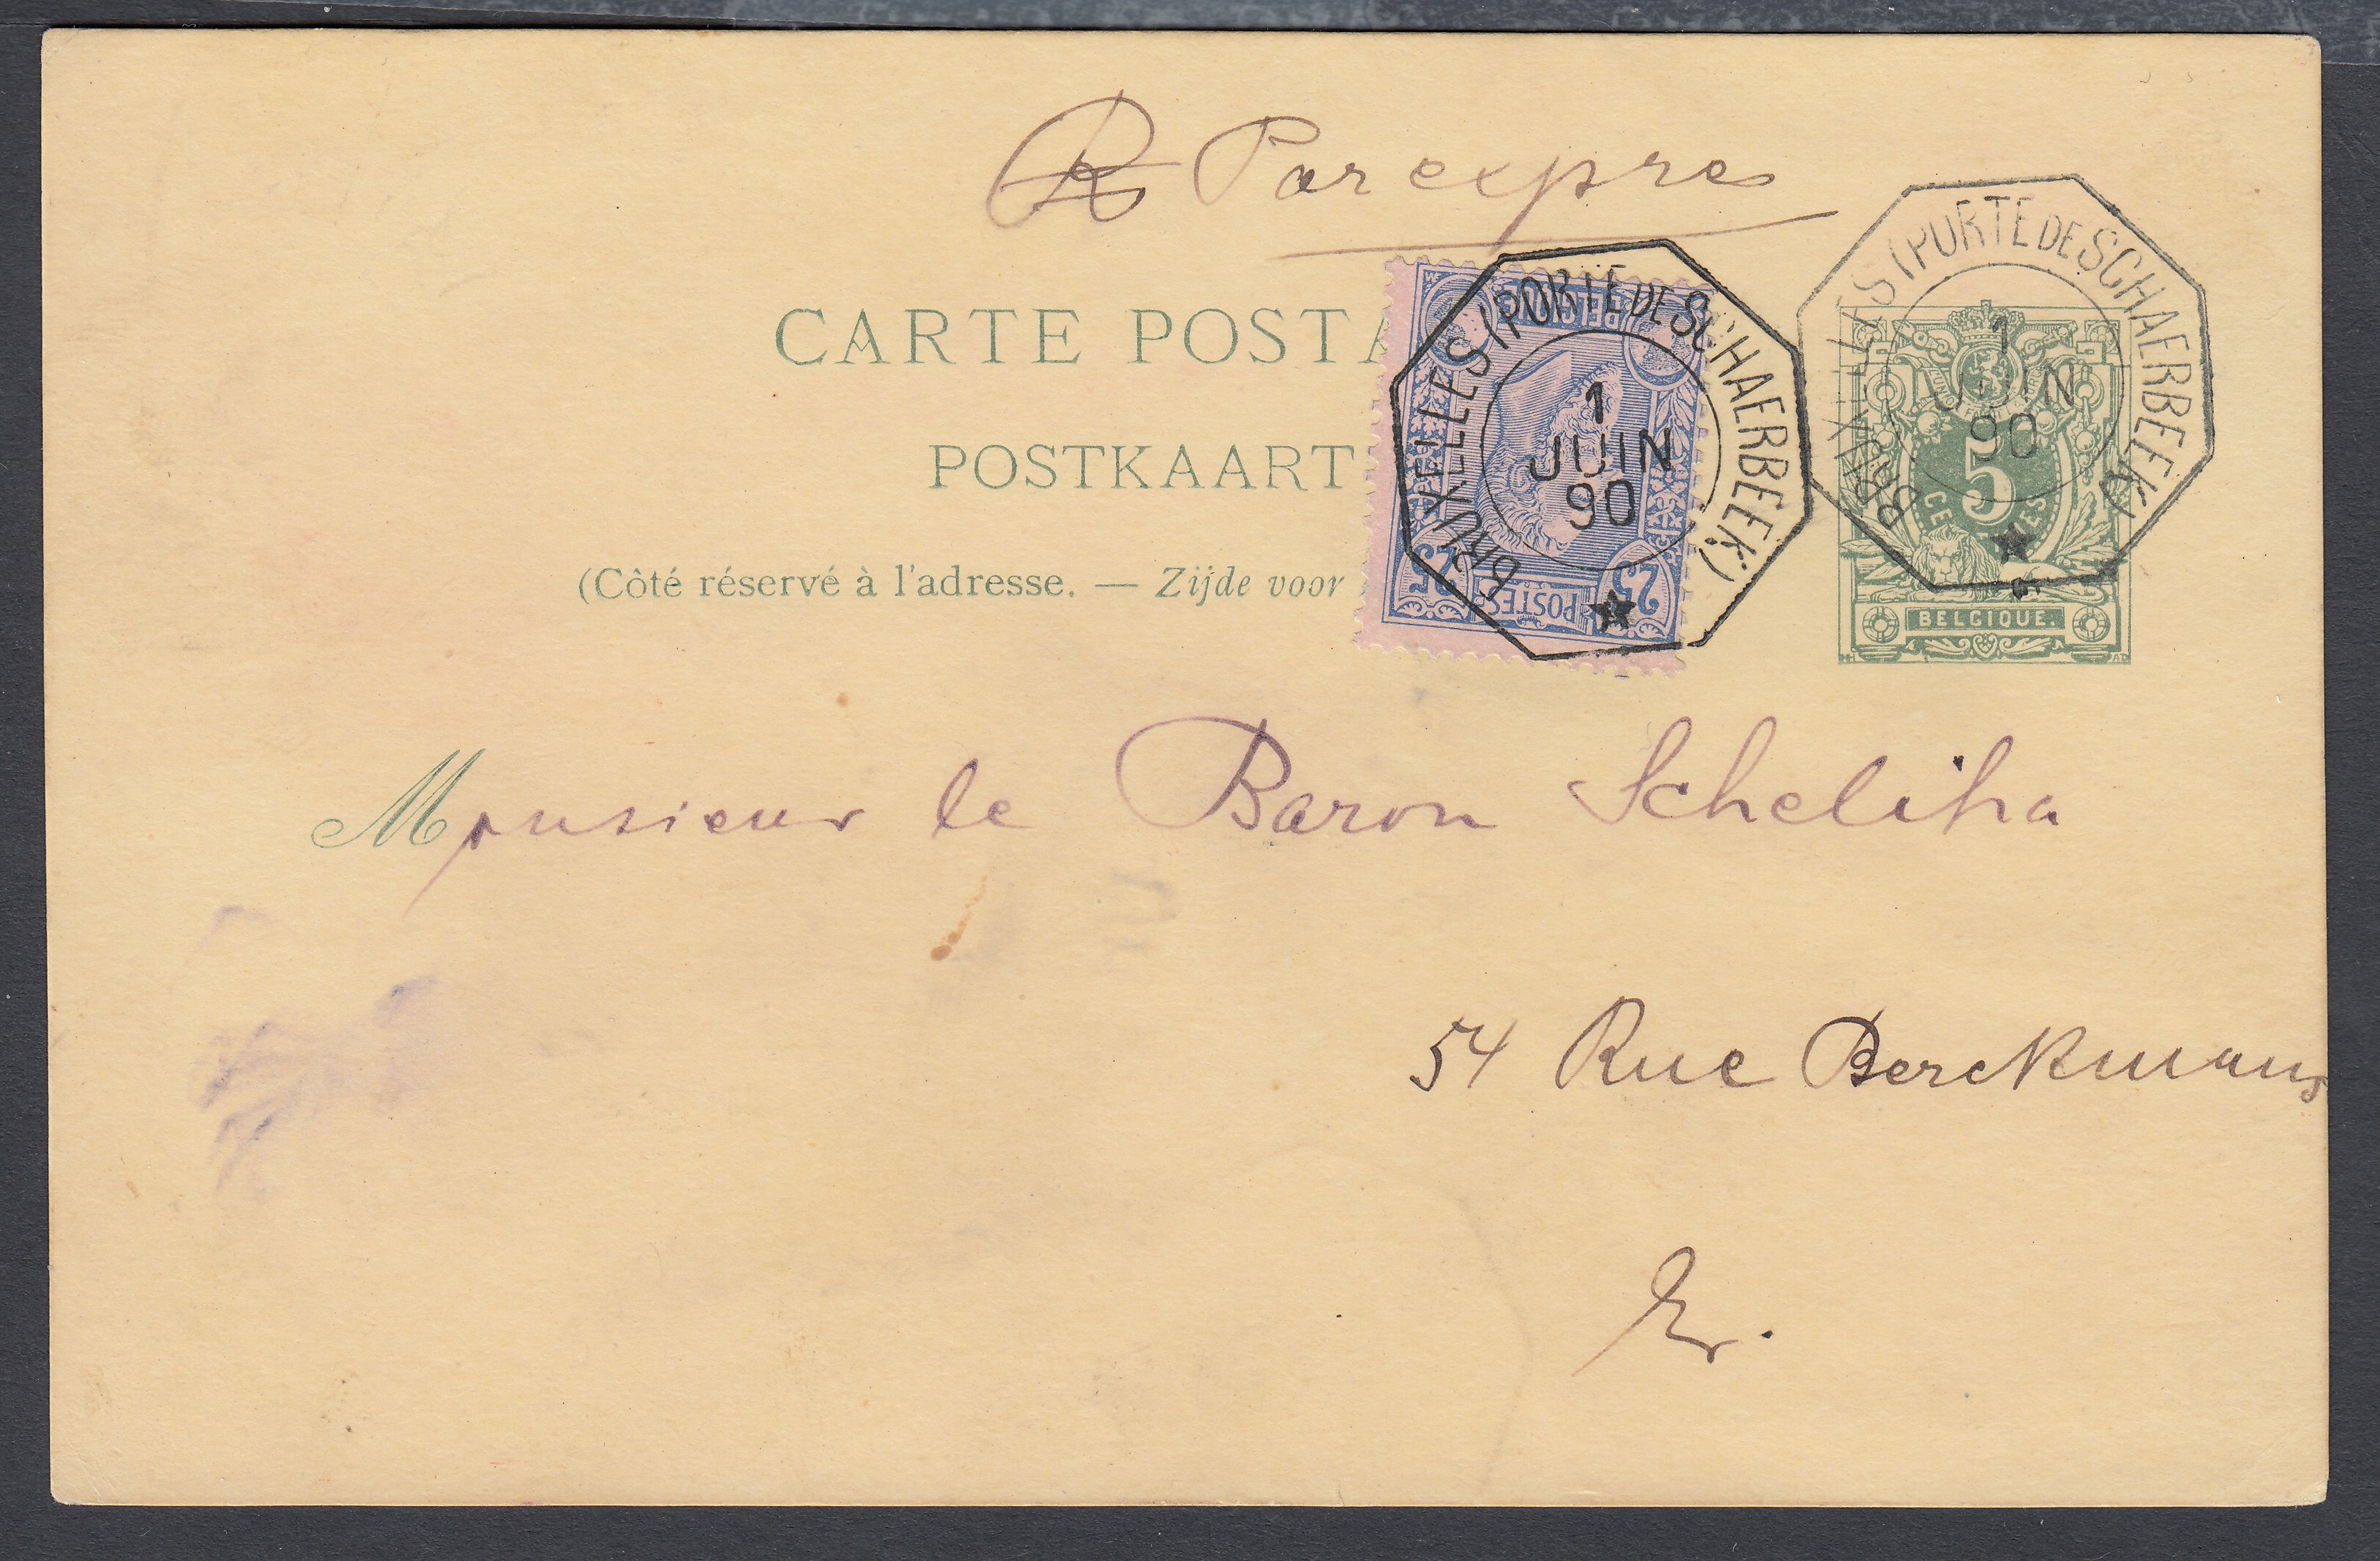 R Par exprès
CARTE POSTA
POSTKAART
(Côté réservé à l'adresse. — Zijde voor
BRUXELLES (PORTE DE SCHAERBEEK)
1
JUIN
90
BELGIQUE
25 POSTES 25
BRUXELLES (PORTE DE SCHAERBEEK)
1
JUIN
90
5
CENTIMES
BELGIQUE.
Monsieur le Baron Scheliha
54 Rue Berckmans